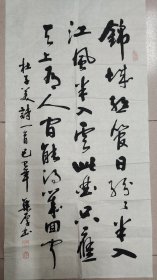 錦城絲管日紛紛半入
江風半入雲此曲只應
天上有人間能得幾回聞
杜子美詩一首